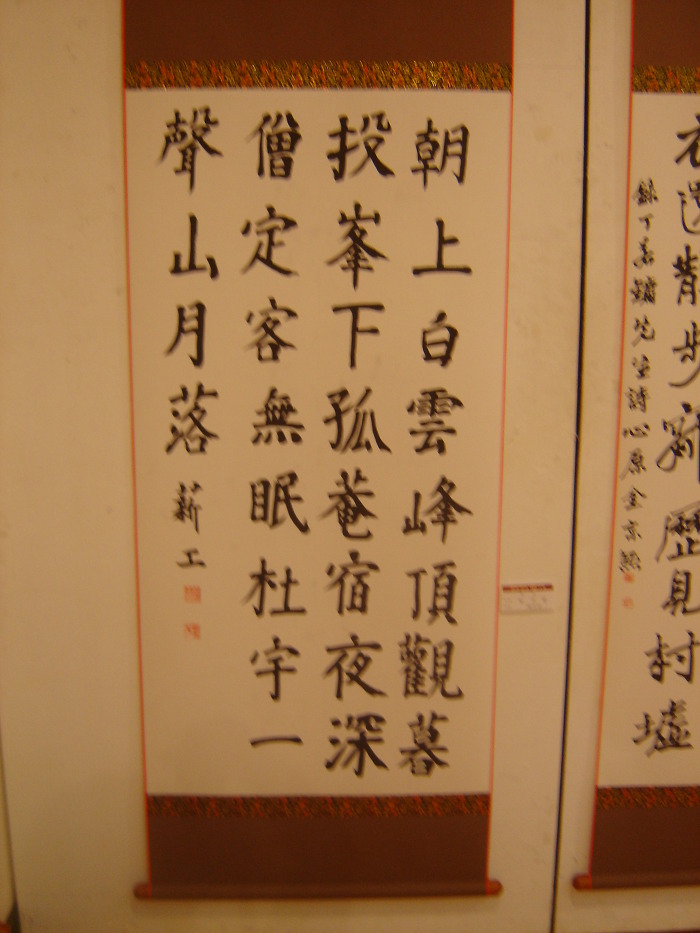 還散步
歷見村墟
錄丁若鏞先生詩心原金京
朝上白雲峰頂觀暮
投峯下孤菴宿夜深
僧定客無眠杜宇一
聲山月落
薪工